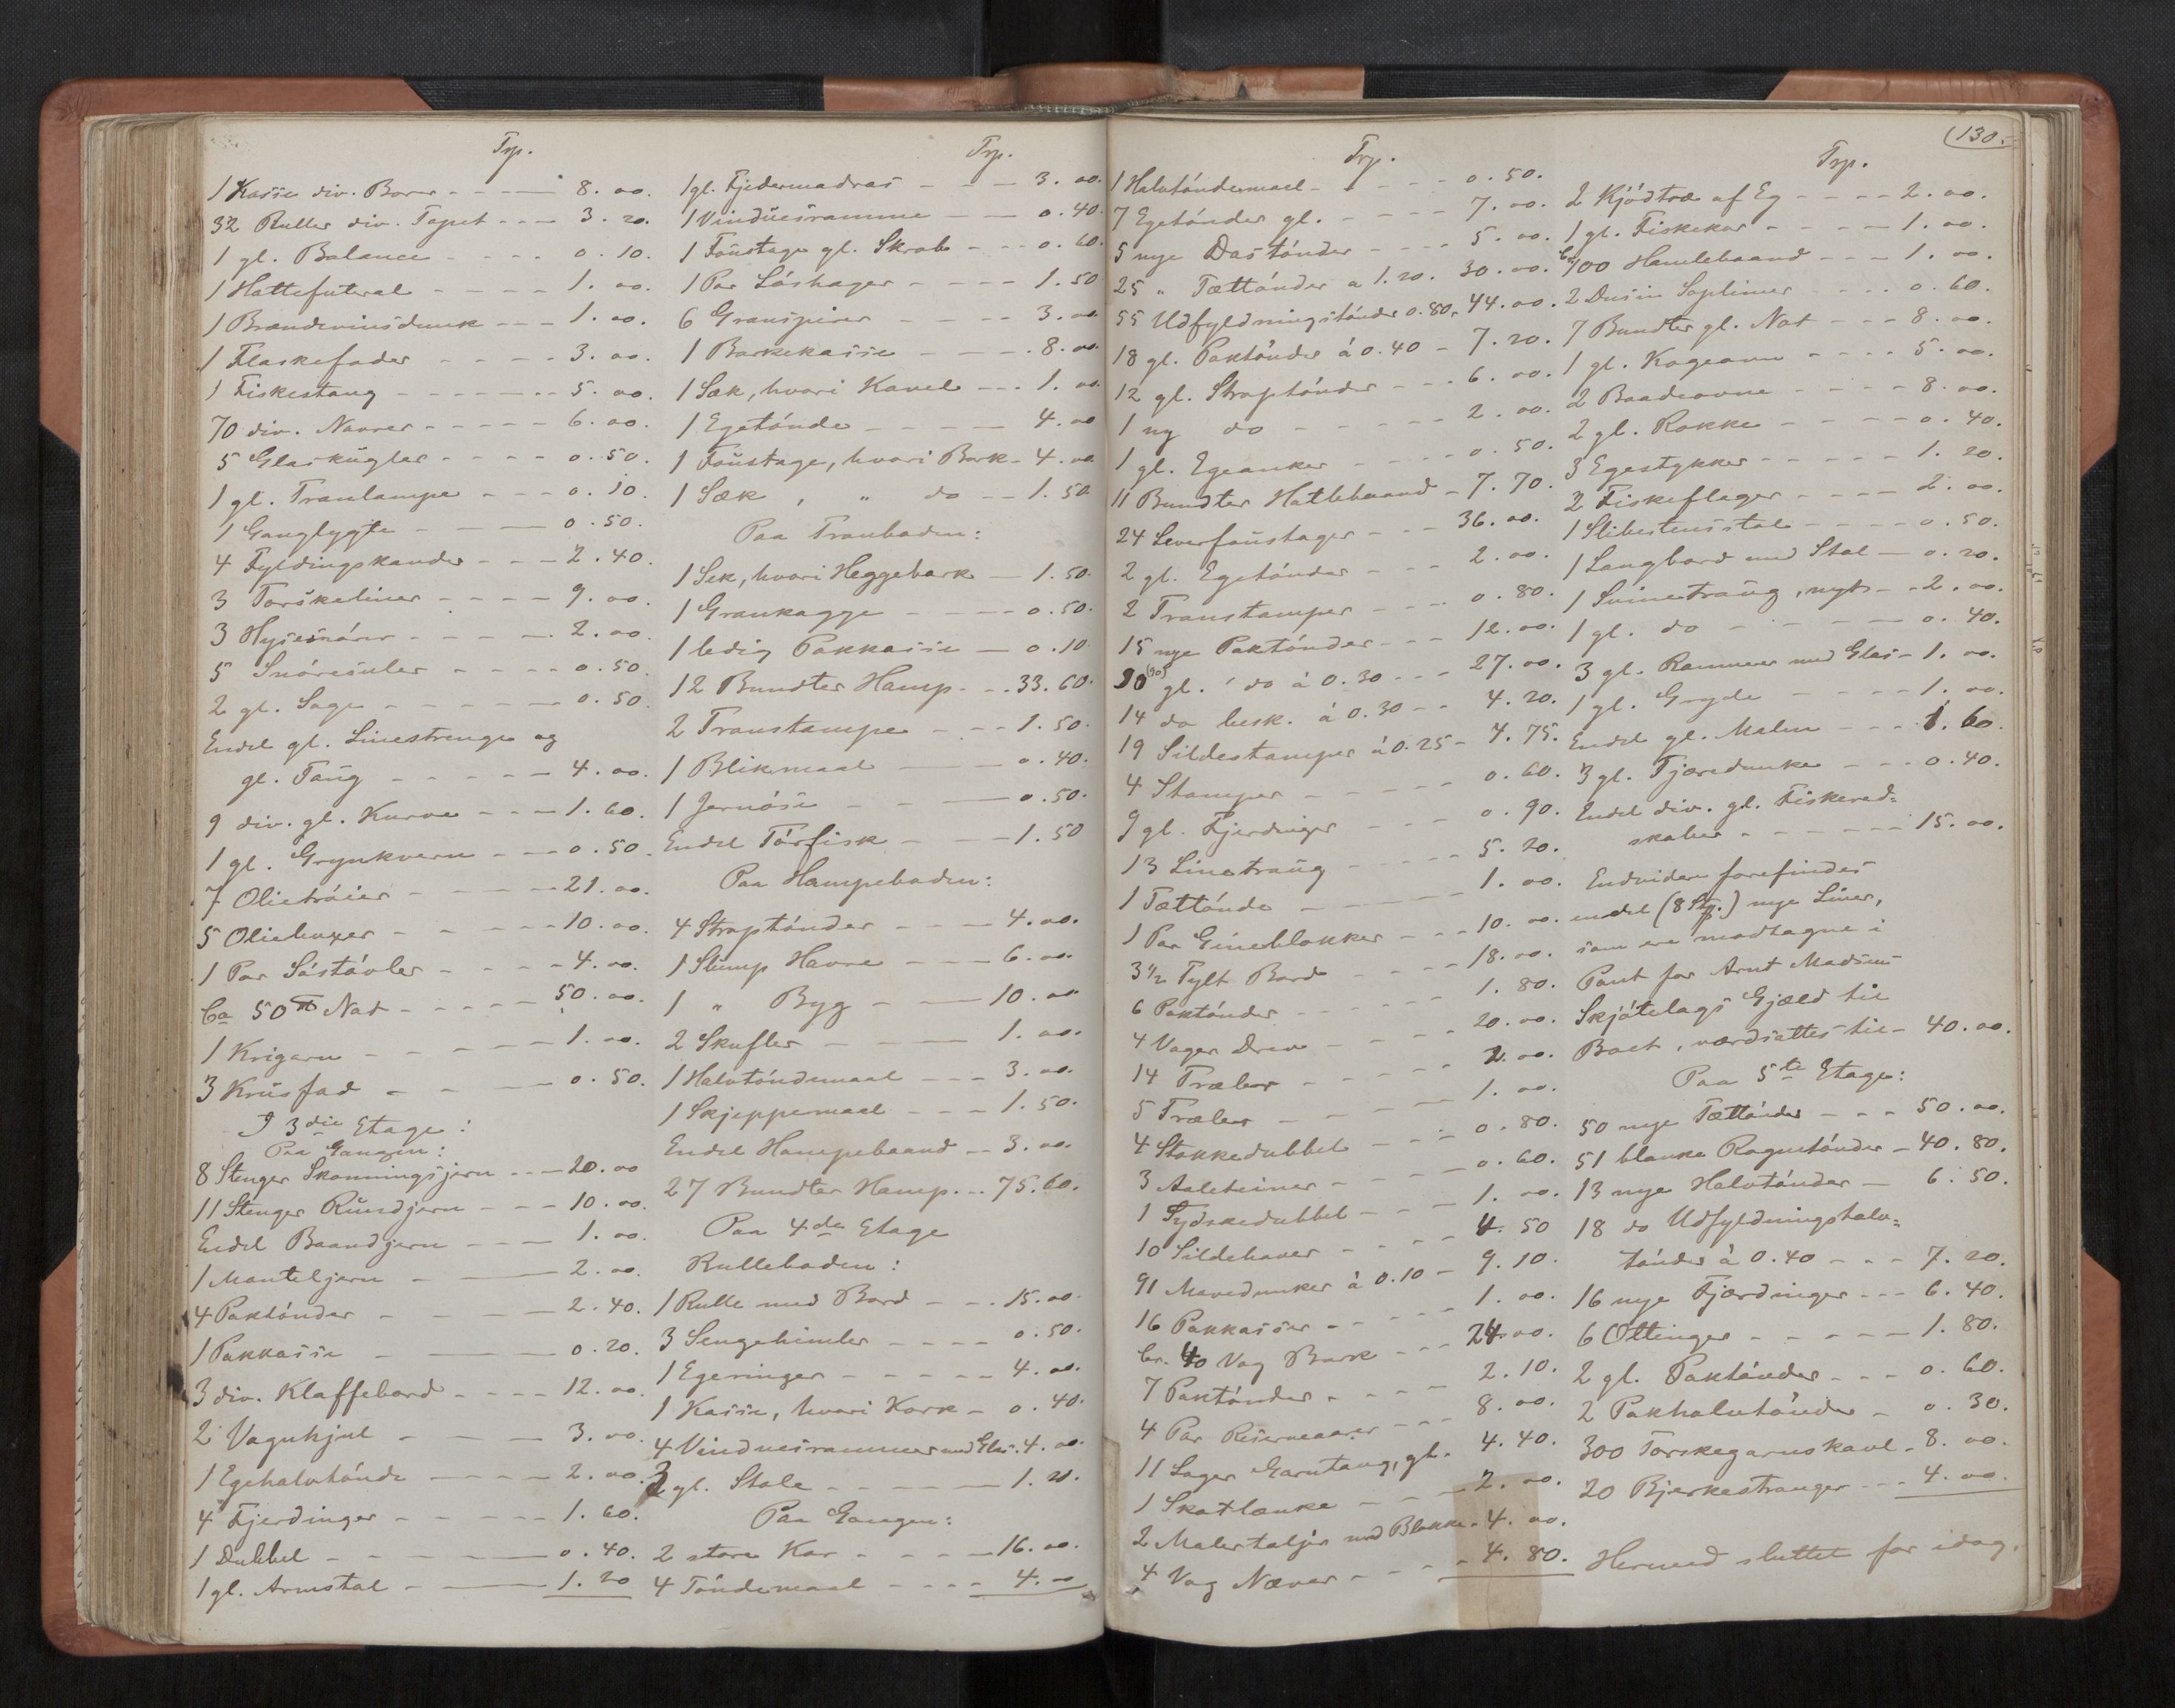 Trp.
1 Kasse div. Borer - - - 8. 00.
32 Ruller div. Tapet - - - 3. 20.
1 gl. Balance - - - - 0. 10.
1 Hattefuteral - - - - 1. 00.
1 Brændevinsdunk - - - 1. 00.
1 Flaskefoder - - - - 3. 00.
1 Fiskestang - - - - - 5. 00.
70 div. Navrer - - - - - 6. 00.
5 Glaskugler - - - - 0. 50.
1 gl. Tranlampe - - - 0. 10.
1 Ganglygte - - - 0. 50.
4 Fyldingskander - - - 2. 40.
3 Torskeliner - - - - 9. 00.
3 Hysesnører - - - - 2. 00.
5 Snøresnler - - - - 0. 50.
2 gl. Sage - - - - - 0. 50.
Endel gl. Linestrenge og
gl. Taug - - - - - 4. 00.
9 div. gl. Kurve - - - 1. 60.
1 gl. Grynkvern - - - 0. 50.
7 Olietrøier - - - - 21. 00.
5 Oliebuxer - - - - 10. 00.
1 Par Søstøvler - - - - 4. 00.
Ca 50 ℔ Not - - - - 50. 00.
1 Krigarn - - - - - 1. 00.
3 Krusfad - - - - 0. 50.
I 3die Etage:
Paa Gangen:
8 Stenger Skonningsjern - - - 20. 00
11 Stenger Rundjern - - - 10. 00.
Endel Baandjern - - - 1. 00.
1 Manteljern - - - 2. 00.
4 Paktønder - - - 2. 40.
1 Pakkasse - - - 0. 20.
3 div. Klaffebord - - - - 12. 00.
2 Vognhjul - - - 3. 00.
1 Egehalvtønde - - - - 2. 00.
4 Fjerdinger - - - - - 1. 60.
1 Dubbel - - - - 0. 40.
1 gl. Armstol - - - 1. 20
Trp.
1 gl. Fjedermadras - - - 3. 00.
1 Vinduesramme - - - 0. 40.
1 Foustage gl. Skrab - - - 0. 60.
1 Par Låshager - - - - 1. 50
6 Granspirer - - - - 3. 00
1 Barkekasse - - - - 8. 00
1 Sæk, hvori Kavel - - - 1. 00.
1 Egetønde - - - - - 4. 00
1 Foustage, hvori Bark - 4. 00
1 Sæk , " do - - 1. 50
Paa Tranboden:
1 Sæk, hvori Heggebark - 1. 50.
1 Grankagge - - - 0. 50.
1 ledig Pakkasse - 0. 10
12 Bundter Hamp. - - 33. 60.
2 Transtampe - - - 1. 50.
1 Blikmaal - - - 0. 40.
1 Jernøse - - - 0. 50.
Endel Tørfisk - - - 1. 50
Paa Hampeboden:
4 Straptønder - - - 4. 00.
1 Slump Havre - - - 6. 00.
1 " Byg - - - 10. 00
2 Skufler - - - 1. 00.
1 Halvtøndemaal - - - 3. 00.
1 Skjeppemaal - - - 1. 50.
Endel Hampebaand - - 3. 00.
27 Bundter Hamp. - - 75. 60.
Paa 4de Etage
Rulleboden:
1 Rulle med Bord - - - 15. 00.
3 Sengehimler - - - - 0. 50.
1 Egeringer - - - - - 4. 00.
1 Kasse, hvori Kork - 0. 40.
4 Vinduesrammer med Glas. 4. 00.
3 gl. Stole - - - - - 1. 20.
Paa Gangen:
2 store Kar - - - - 16. 00.
4 Tøndemaal - - - - 4. 00
(130.
Trp.
1 Halvtøndemaal - - - - 0. 50.
7 Egetønder gl. - - - - 7. 00.
5 nye Dastønder - - - - 5. 00.
25 " Tættønder a 1.20. 30. 00.
55 Udfyldningstønder 0.80, 44. 00.
18 gl. Paktønder á 0.40 - 7. 20.
12 gl. Straptønder - - - 6. 00.
1 ny do - - - - - 2. 00.
1 gl. Egeanker - - - - 0. 50.
11 Bundter Hatlebaand - 7. 70.
24 Leverfoustager - - - 36. 00.
2 gl. Egetønder - - - 2. 00.
2 Transtamper - - - 0. 80.
15 nye Paktønder - - - 12. 00.
90 (90) gl. do á 0.30 - - - 27. 00.
14 do besk. á 0.30 - - 4. 20.
19 Sildestamper á 0.25 - 4. 75.
4 Stamper - - - - - 0. 60.
9 gl. Fjerdinger - - - 0. 90.
13 Linetraug - - - - - 5. 20.
1 Tættønde - - - - 1. 00.
1 Par Gineblokker - - - 10. 00.
3 1/2 Tylt Bord - - - - 18. 00.
6 Paktønder - - - - - 1. 80.
4 Vager Drev - - - - 20. 00.
14 Træler - - - - - 2. 00.
5 Træler - - - - 1. 00.
4 Stokkedubbel - - - 0. 80.
3 Aaleteiner - - - - 0. 60.
1 Tydskedubbel - - - 1. 00.
10 Sildehaver - - - - 4. 50
91 Mavedunker á 0.10 - 9. 10.
16 Pakkasser - - - - 1. 00.
Ca. 40 Vog Bark - - - 24. 00.
7 Paktønder - - - - 2. 10.
4 Par Reserveaarer - - - 8. 00.
11 Lager Garntaug, gl. 4. 40.
1 Skatlænke - - - 2. 00.
2 Malertaljer med Blokke - 4. 00.
4 Vog Næver - - - - 4. 80.
Trp.
2 Kjødtræ af Eg - - - - 2. 00.
1 gl. Fiskekar - - - - 1. 00.
Ca 100 Handebaand - - - 1. 00.
2 Dusin Soplimer - - - 0. 60.
7 Bundter gl. Not - - - 8. 00.
1 gl. Kogeovn - - - - 5. 00.
2 Baadeovne - - - - 8. 00.
2 gl. Rokke - - - - 0. 40.
3 Egestykker - - - - - 1. 20.
2 Fiskeflager - - - - 2. 00.
1 Slibestensstol - - - - 0. 50.
1 Langbord med Stol - 0. 20.
1 Svinetraug, nyt - - 2. 00.
1 gl. do - - - - 0. 40.
3 gl. Rammer med Glas - 1. 00.
1 gl. Gryde - - - - 1. 00.
Endel gl. Malm - - - 1. 60.
3 gl. Tjæredunke - - - 0. 40.
Endel div. gl. Fiskered=
skaber - - - - - - 15. 00.
Endvidere forefindes
endel (8 Stk.) nye Liner,
som ere modtagne i
Pant for Arnt Madsens
Skjøtelags Gjæld til
Boet, værdsattes til - 40. 00.
Paa 5te Etage:
50 nye Tættønder - - - 50. 00.
51 blanke Rogntønder - 40. 80.
13 nye Halvtønder - 6. 50.
18 do Udfyldningshalv=
tønder á 0.40 - - - 7. 20.
16 nye Fjerdinger - - - 6. 40.
6 Ottinger - - - - - 1. 80.
2 gl. Paktønder - - - 0. 60.
2 Pakhalvtønder - 0. 30.
300 Torskegarnskavl - 8. 00.
20 Bjerkestranger - - - 4. 00.
Hermed sluttet for idag.